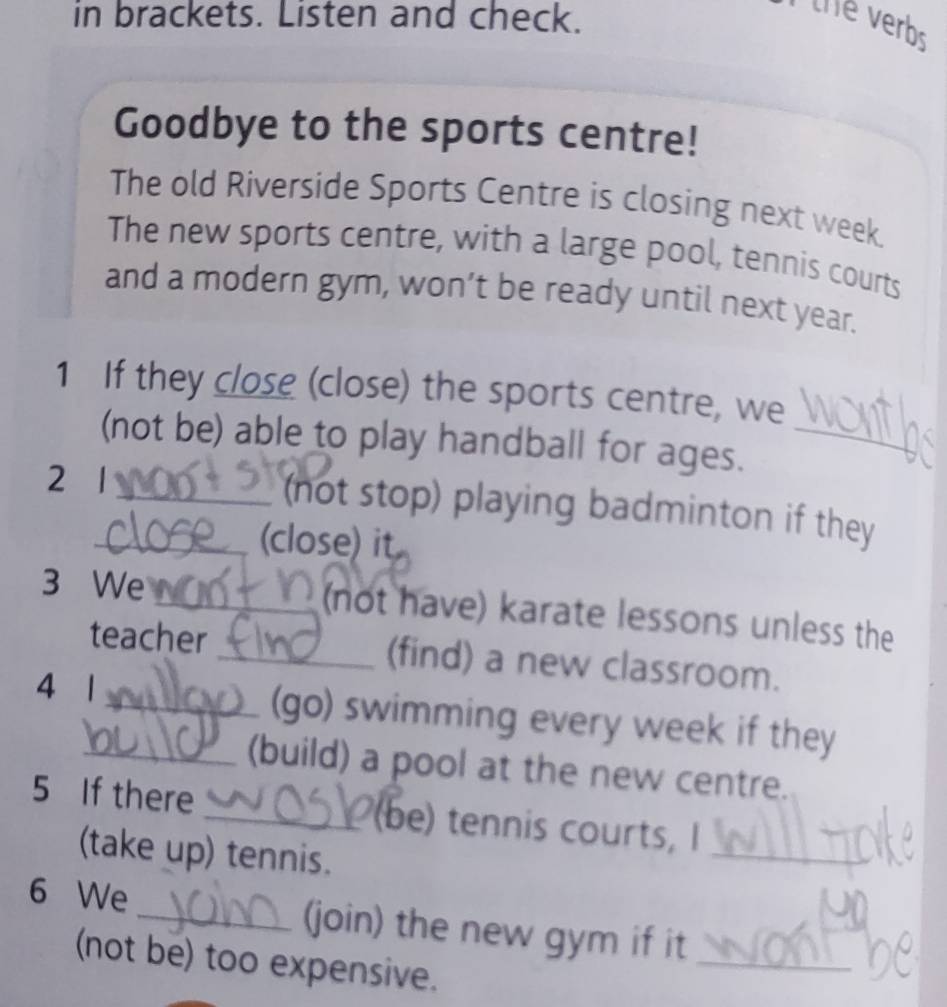 in brackets. Listen and check.
the verbs
Goodbye to the sports centre!
The old Riverside Sports Centre is closing next week.
The new sports centre, with a large pool, tennis courts
and a modern gym, won't be ready until next year.
1 If they close (close) the sports centre, we wont be
(not be) able to play handball for ages.
2 I wont stop (not stop) playing badminton if they
close (close) it.
3 We wont have (not have) karate lessons unless the
teacher find (find) a new classroom.
4 I will go (go) swimming every week if they
build (build) a pool at the new centre.
5 If there (be) tennis courts, I will take
(take up) tennis. up
6 We join (join) the new gym if it wont be
(not be) too expensive.